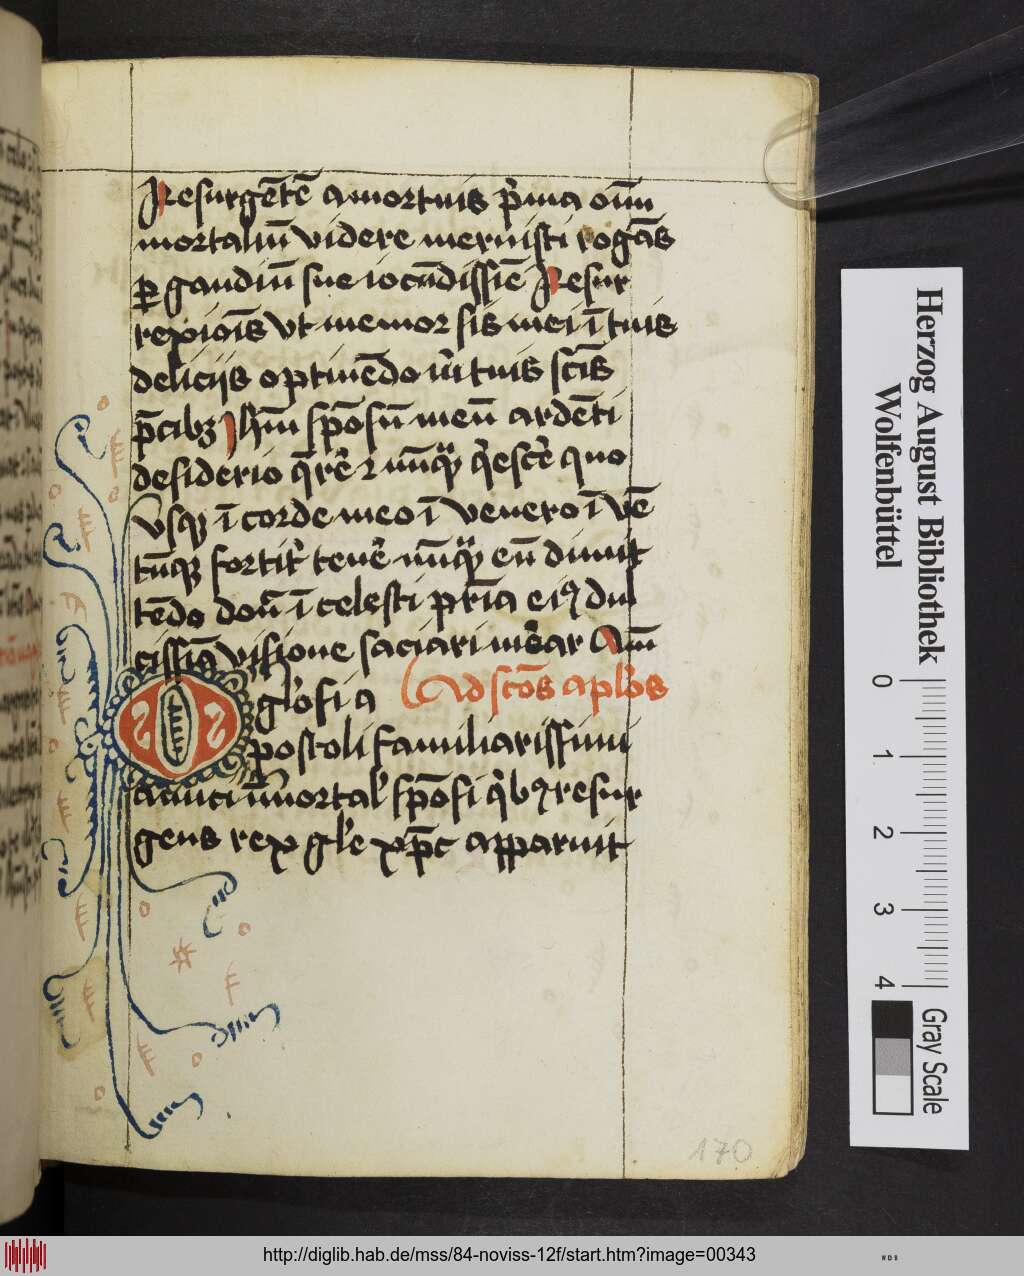 Resurgētē a mortuis p̄ma oīm
mortaliū videre meruisti rogās
ꝑ gaudiū sue iocūdissīe Resur
rexiōīs vt memor sis mei ī tuis
deliciis optinēdo m̄ tuis sc̄īs
p̄cibꝫ Ihm̄ spōsū meū ardēti
desiderio q̄rēꝛ nūqꝫ q̇escē quo
vsqꝫ ī corde meo ī venero īvē
tūqꝫ fortit̉ tenē nūqꝫ eū dimit
tēdo don̄ ī celesti pr̄ia eiꝰ dul
cissīa visione saciari mear Am̄
O glōsi a Ad sctōs aplōs
postoli familiarissimi
amici īmortal̓ spōsi q̇bꝰ resur
gens rex gl̓e xp̄c apparuit
170
Herzog August Bibliothek
Wolfenbüttel
0 1 2 3 4
Gray Scale
http://diglib.hab.de/mss/84-noviss-12f/start.htm?image=00343